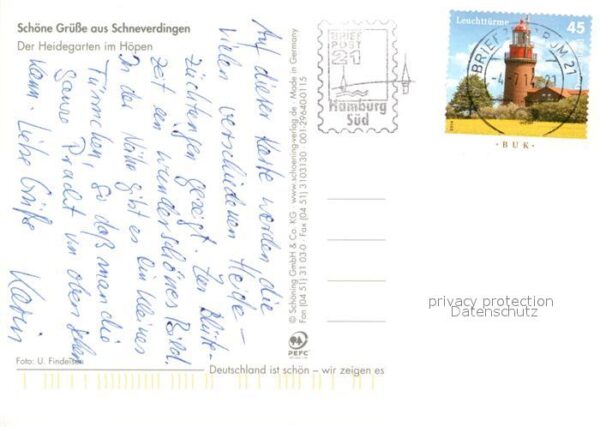 Schöne Grüße aus Schneverdingen
Der Heidegarten im Höpen
Auf dieser Karte werden die
vielen verschiedenen Heide-
züchtungen gezeigt. Zur Blüte-
zeit ein wunderschönes Bild.
In der Nähe gibt es ein kleines
Türmchen, so daß man die
ganze Pracht von oben sehen
kann. Liebe Grüße
Karin
Foto: U. Findeisen
© Schöning GmbH & Co. KG · www.schoening-verlag.de · Made in Germany
Fon (04 51) 31 03-0 · Fax (04 51) 3103130 · 001-29640-0115
PEFC
Deutschland ist schön – wir zeigen es
BRIEF
POST
21
Hamburg
Süd
Leuchttürme
45
BRIEFZENTRUM 21
-4-7 14-21
· BUK ·
privacy protection
Datenschutz